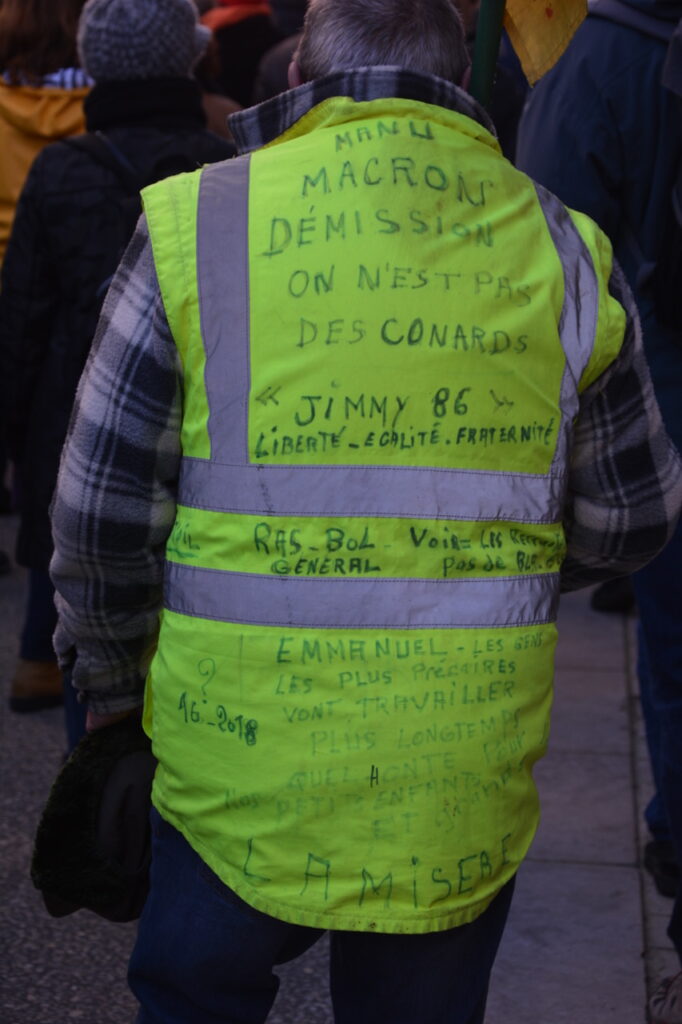 MANU
MACRON
DÉMISSION
ON N'EST PAS
DES CONARDS
« JIMMY 86 »
LIBERTÉ - EGALITÉ. FRATERNITÉ
RAS-BOL - VOIR= LES
GÉNÉRAL PAS DE
EMMANUEL - LES GENS
LES PLUS PRÉCAIRES
? VONT TRAVAILLER
16-2018 PLUS LONGTEMPS
QUEL HONTE POUR
NOS PETITS ENFANTS
ET
LA MISERE